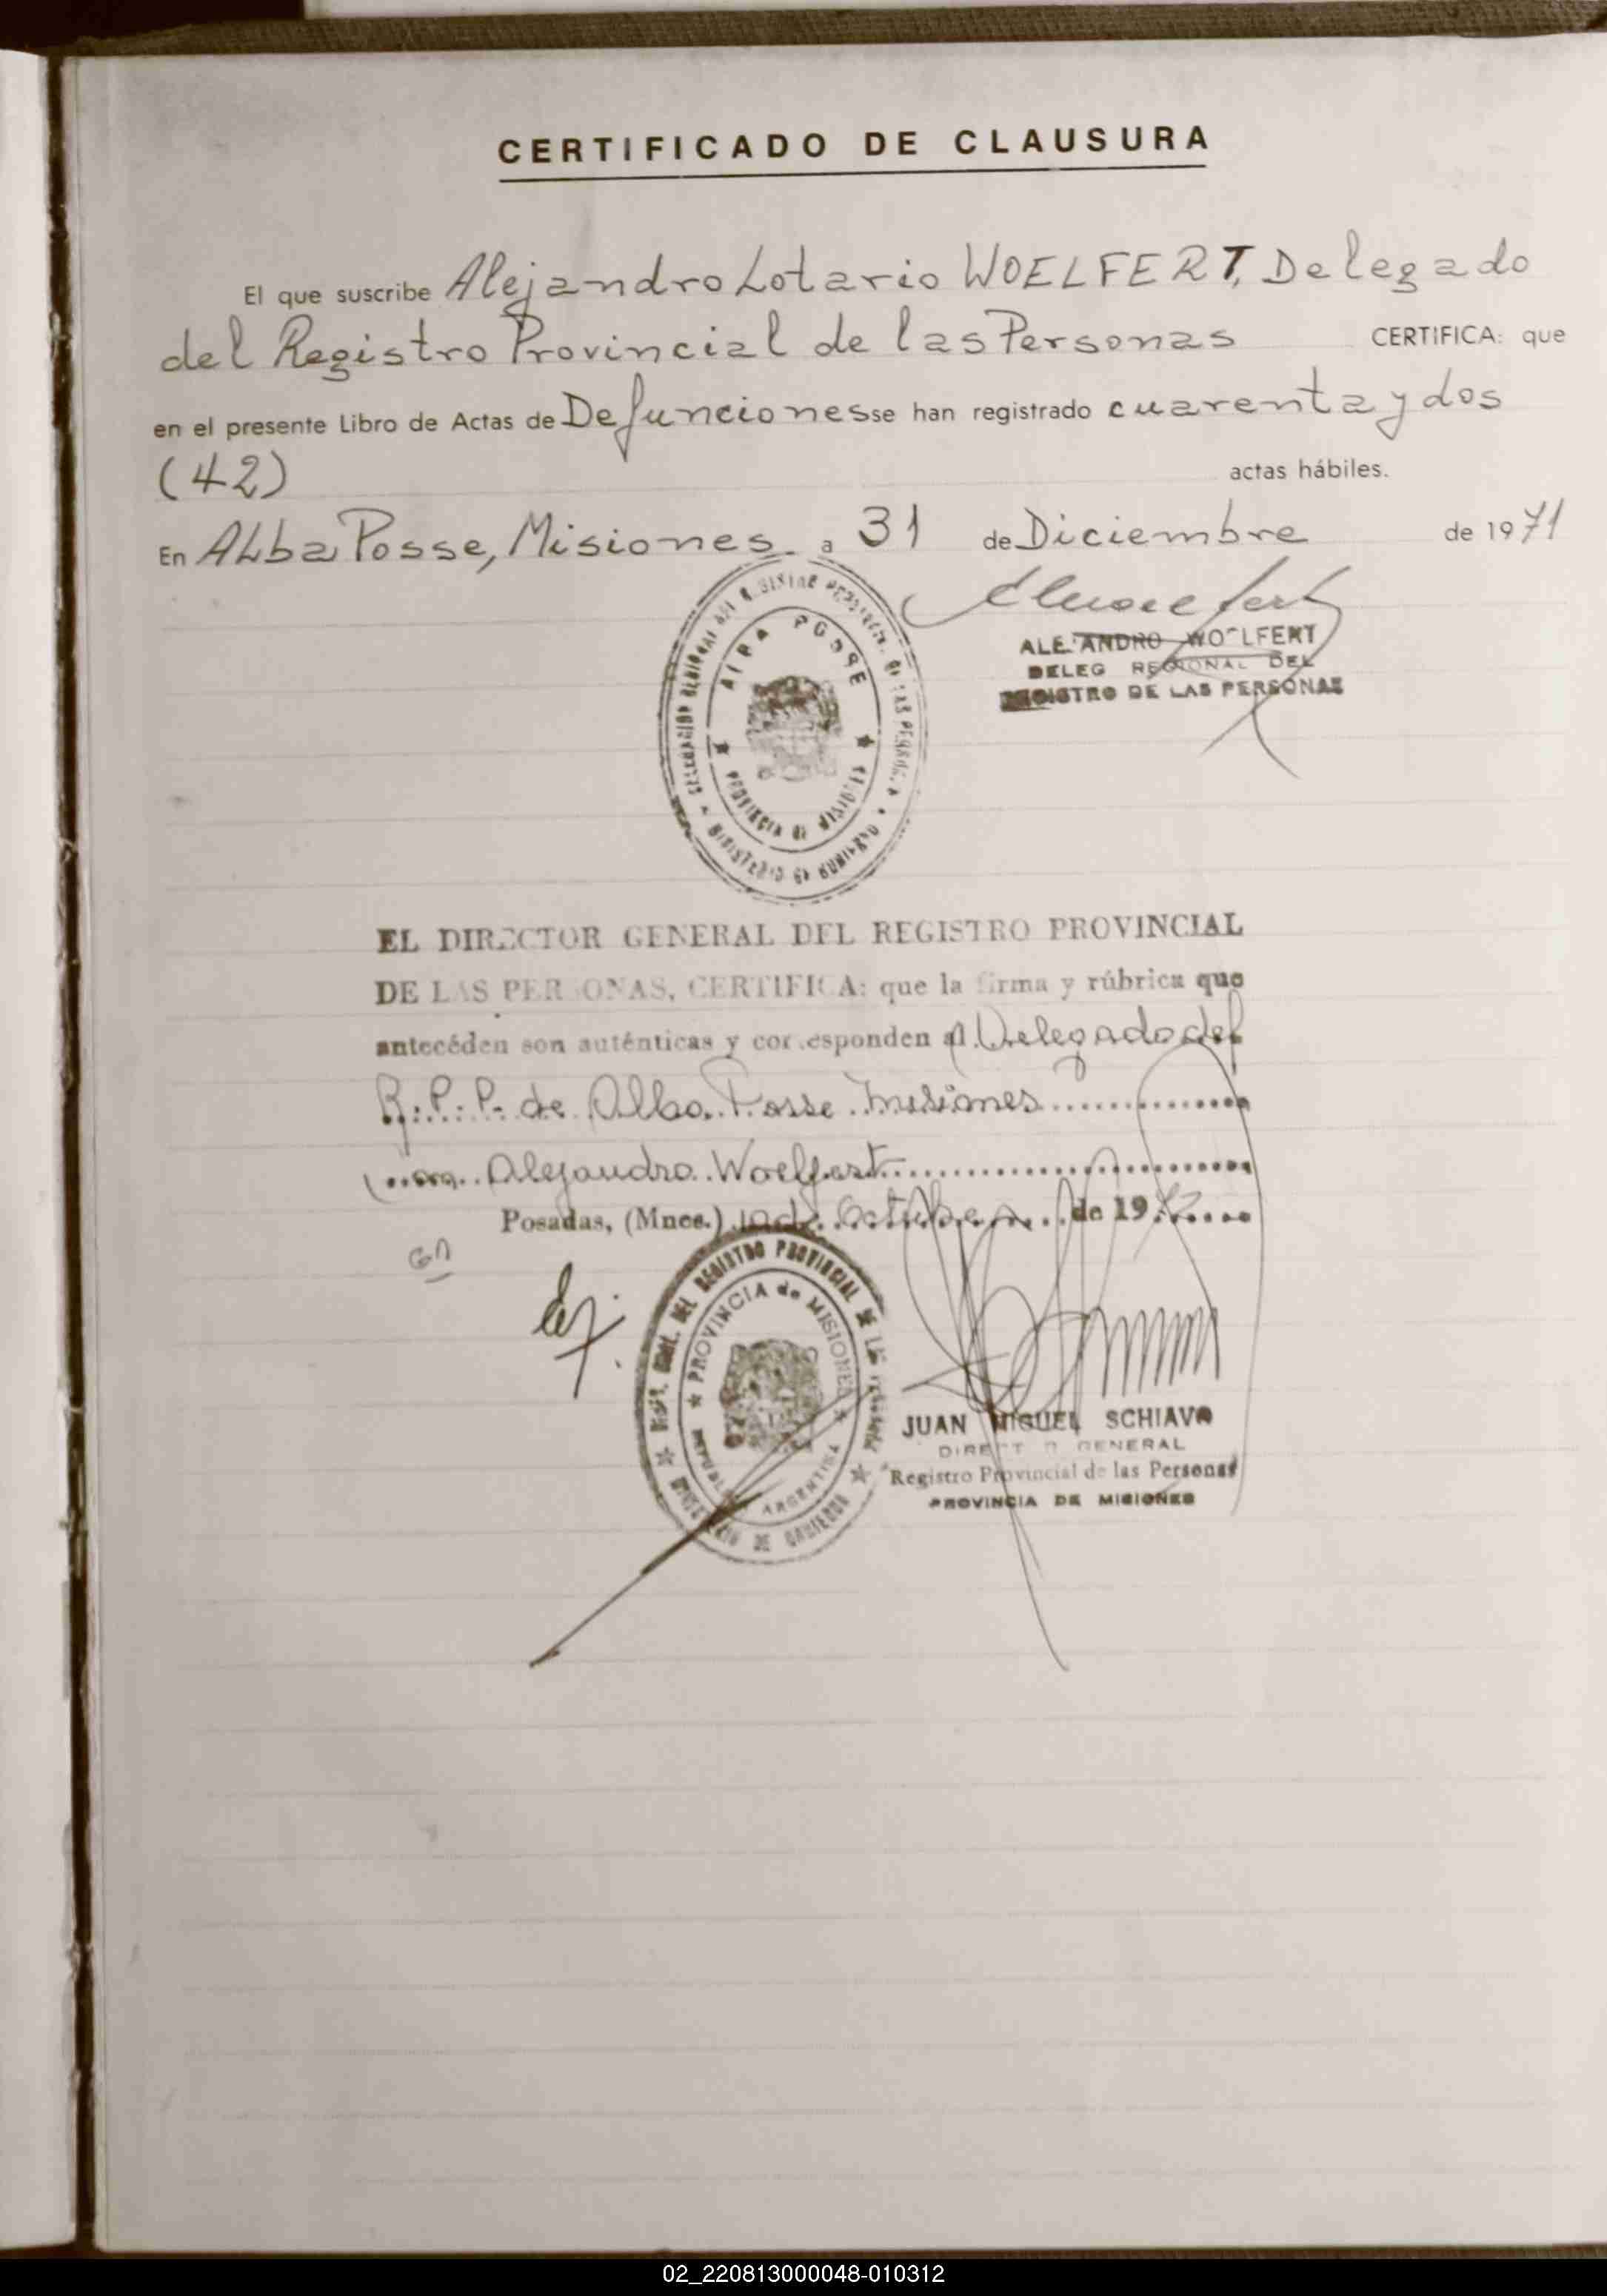 CERTIFICADO DE CLAUSURA
El que suscribe Alejandro Lotario WOELFERT, Delegado
del Registro Provincial de las Personas CERTIFICA: que
en el presente Libro de Actas de Defunciones se han registrado cuarenta y dos
(42) actas hábiles.
En Alba Posse, Misiones a 31 de Diciembre de 1971
ALEJANDRO WOELFERT
DELEG REGIONAL DEL
REGISTRO DE LAS PERSONAS
ALBA POSSE
PROVINCIA DE MISIONES
MINISTERIO DE GOBIERNO
EL DIRECTOR GENERAL DEL REGISTRO PROVINCIAL
DE LAS PERSONAS, CERTIFICA: que la firma y rúbrica que
antecéden son auténticas y corresponden al Delegado del
R. P. P. de Alba Posse Misiones
Alejandro Woelfert
Posadas, (Mnes.) Octubre de 19
DEL REGISTRO PROVINCIAL DE LAS
PROVINCIA de MISIONES
REPUBLICA ARGENTINA
MINISTERIO DE GOBIERNO
JUAN MIGUEL SCHIAVO
DIRECTOR GENERAL
Registro Provincial de las Personas
PROVINCIA DE MISIONES
02_220813000048-010312